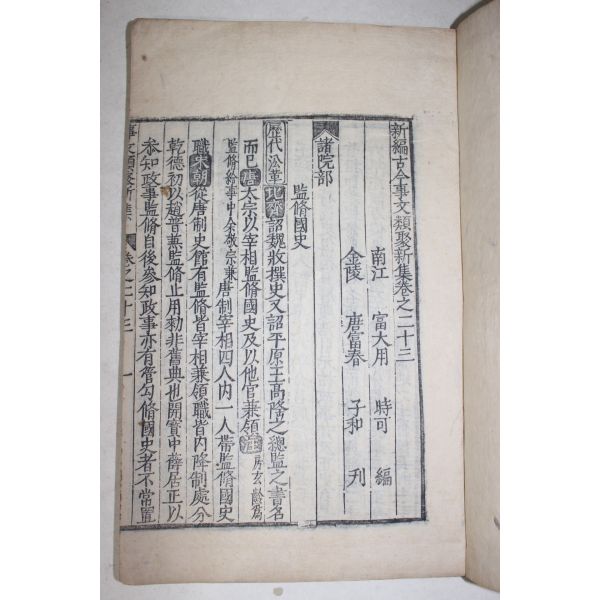 新編古今事文類聚新集卷之二十三
南江 富大用 時可 編
金陵 唐富春 子和 刊
諸院部
監脩國史
歷代沿革北齊詔魏收撰史又詔平原王高隆之總監之書名
而已唐太宗以宰相監脩國史及以他官兼領注房玄齡為
監脩給事中余敬宗兼唐制宰相四人內一人帶監脩國史
職宋朝從唐制史館有監脩皆宰相兼領職皆內降制處分
乾德初以趙普兼監脩止用勑非舊典也開寳中薛居正以
叅知政事監脩自後叅知政事亦有管勾脩國史者不常置
事文類聚新集 卷之二十三 一